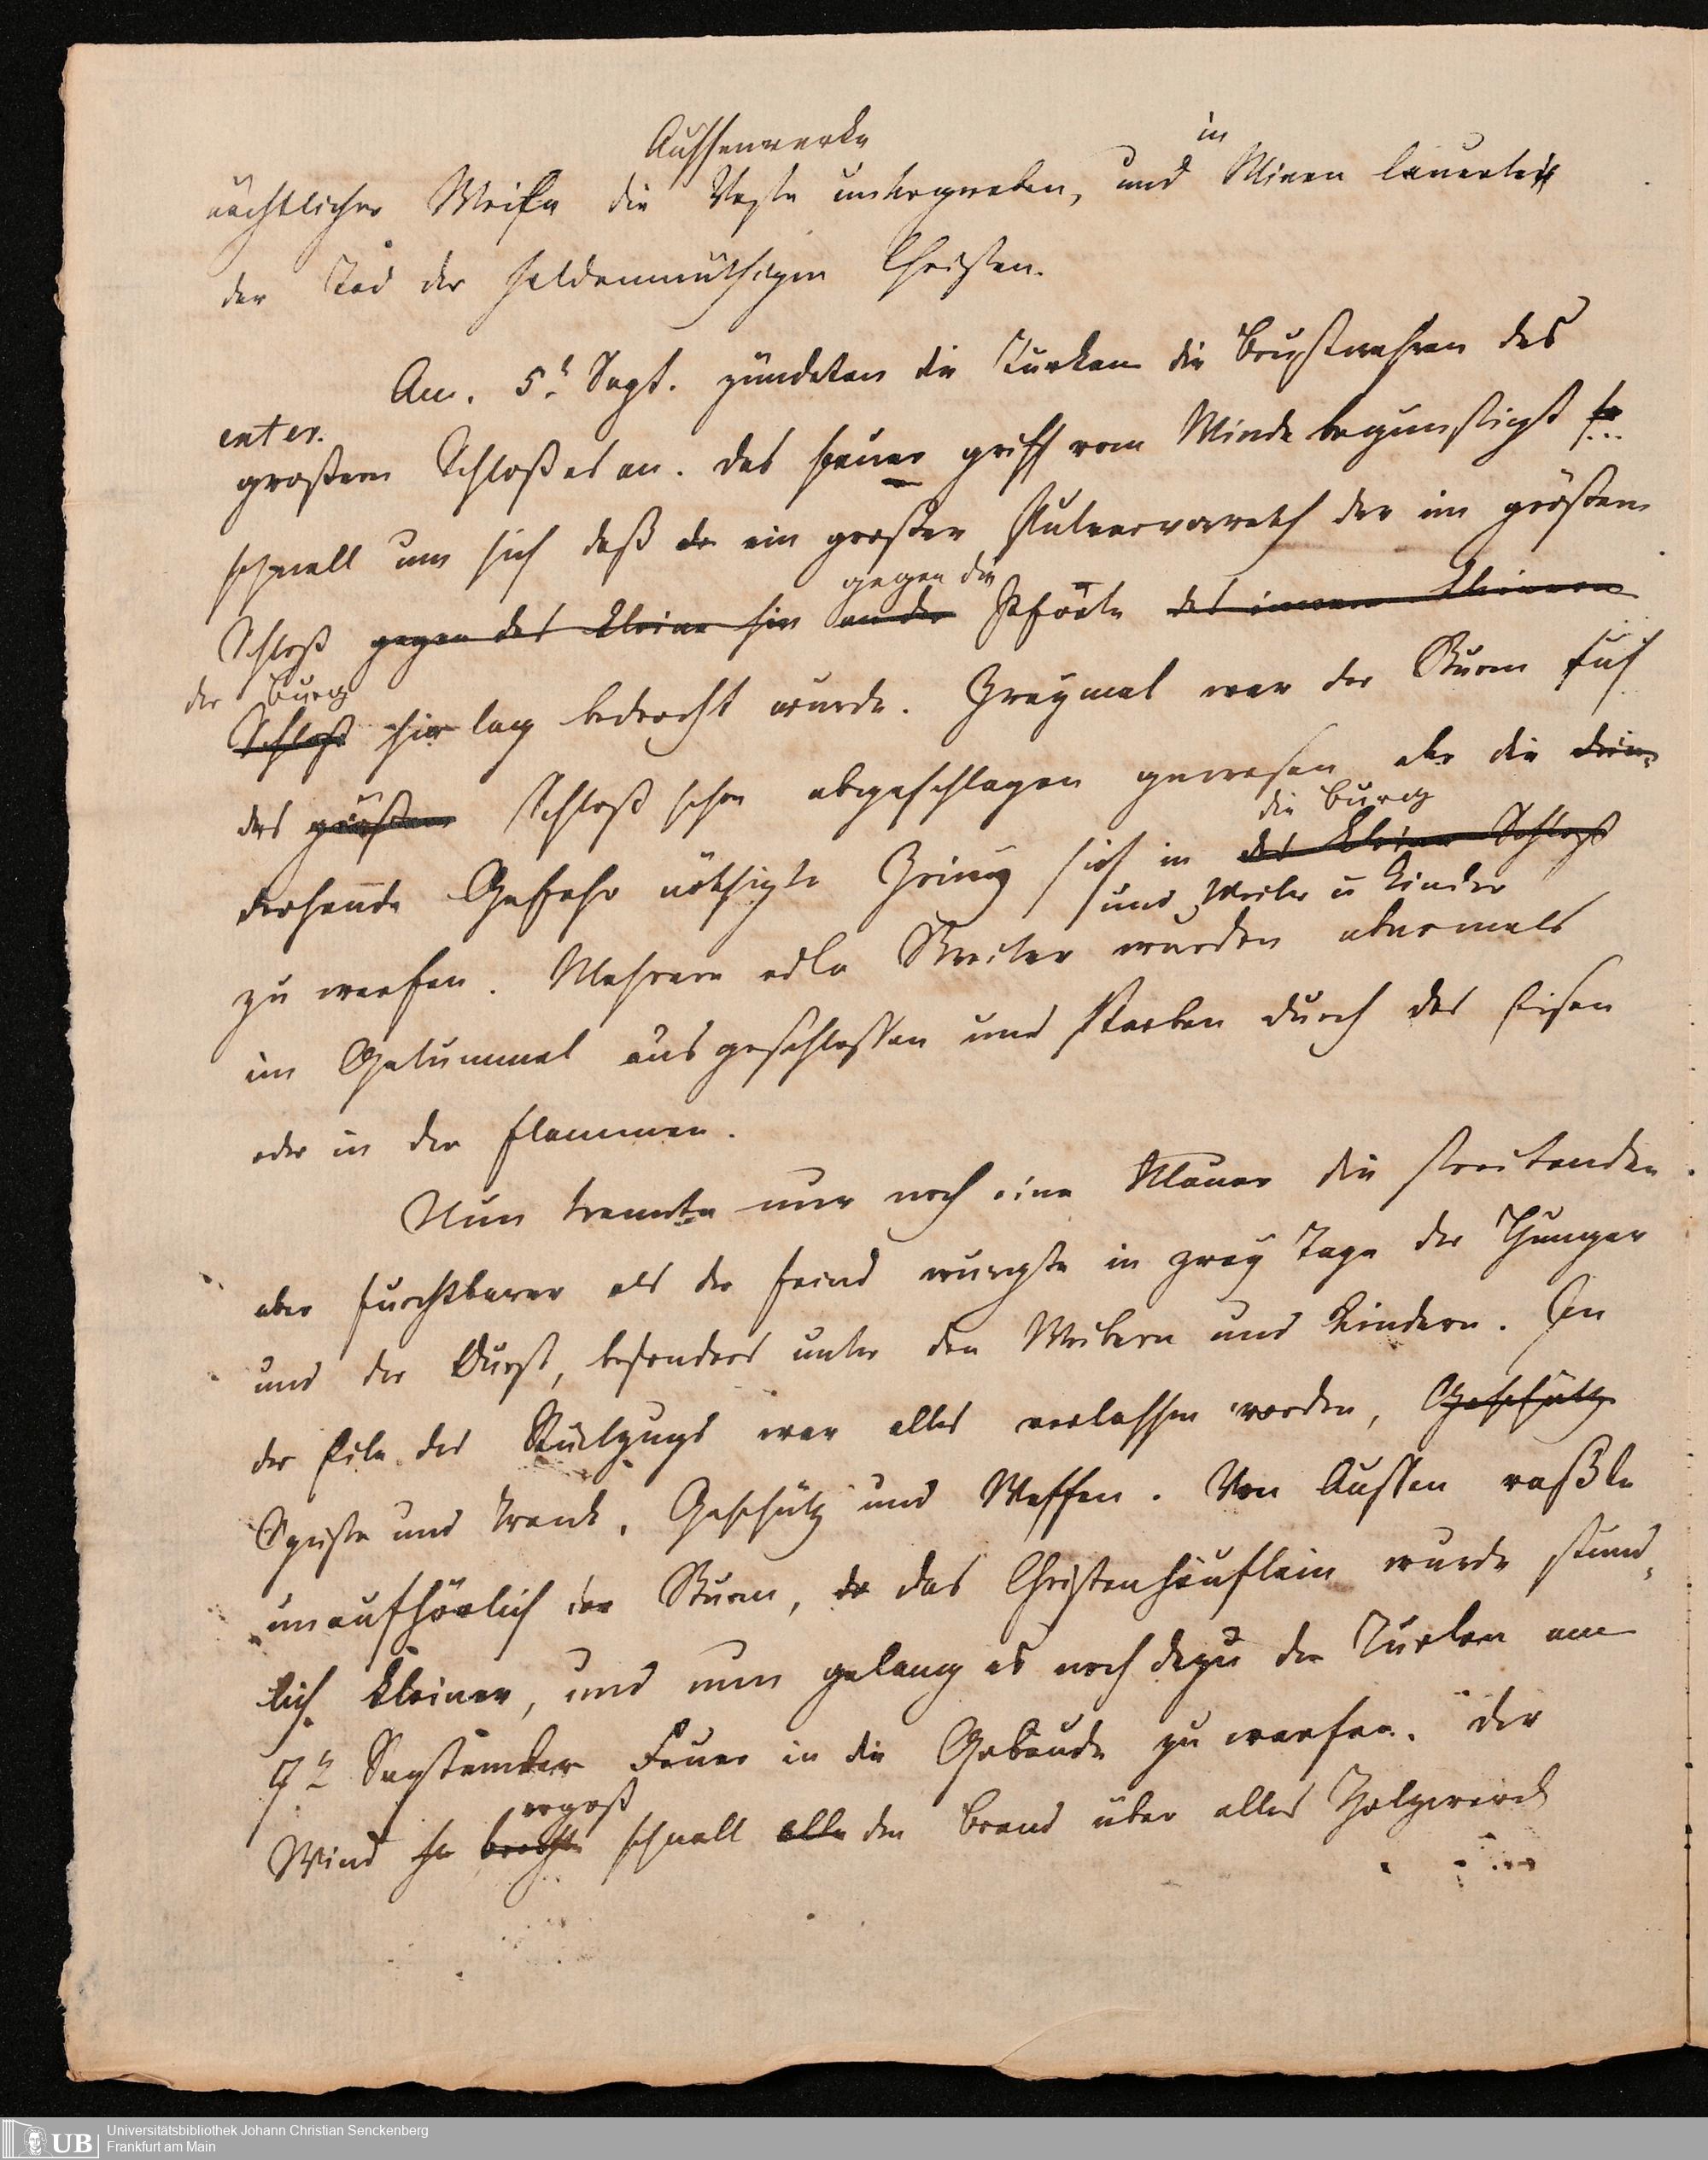 Aussenwerke in
nächtlicher Weise die Veste untergraben, und Minen lauerte
der Tod der heldenmüthigen Christen.
Am. 5t Sept. zündeten die Türken die Brustwehren des
großern Schloßes an. das feuer griff vom Winde begünstigt so
schnell um sich daß da ein großer Pulvervorrath der im größern
gegen die
Schloß gegen das kleine hin an der Pforte des innern kleinern
der Burg
Schloß hin lag bedroht wurde. Zweymal war der Sturm auf
das größere Schloß schon abgeschlagen gewesen aber die drin-
die Burg
drohende Gefahr nöthigte Zriny sich in das kleine Schloß
und Weiber u Kinder
zu werfen. Mehrere edle Streiter wurden abermals
im Getümmel ausgeschlossen und starben durch das Eisen
oder in den flammen.
Nun trennte nur noch eine Mauer die streitenden
aber furchtbarer als der feind würgte in zwey Tage der Hunger
und der Durst, besonders unter den Weibern und Kindern. In
der Eile des Rückzugs war alles verlassen worden, Geschütz
Speise und Trank, Geschütz und Waffen. Von Aussen raßte
unaufhörlich der Sturm, da das Christenhäuflein wurde stünd-
lich kleiner, und nun gelang es noch dazu den Türken am
7t September Feuer in die Gebäude zu werfen. der
ergoß
Wind brachte schnell alle den Brand über alles Holzwerck
Universitätsbibliothek Johann Christian Senckenberg
UB Frankfurt am Main